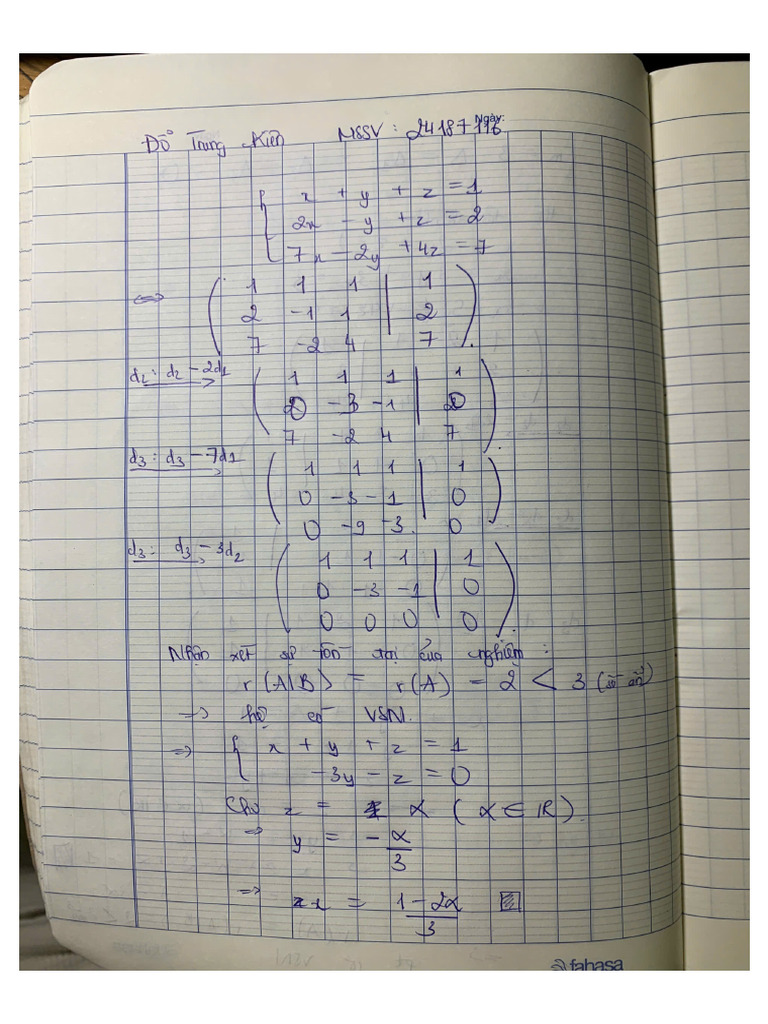 Đỗ Trung Kiên MSSV: 24187116 Ngày:
x + y + z = 1
2x - y + z = 2
7x - 2y + 4z = 7
⇔ ( 1 1 1 | 1
2 -1 1 | 2
7 -2 4 | 7 )
d2: d2 - 2d1 → ( 1 1 1 | 1
0 -3 -1 | 0
7 -2 4 | 7 )
d3: d3 - 7d1 → ( 1 1 1 | 1
0 -3 -1 | 0
0 -9 -3 | 0 )
d3: d3 - 3d2 → ( 1 1 1 | 1
0 -3 -1 | 0
0 0 0 | 0 )
Nhận xét sự tồn tại của nghiệm:
r(A|B) = r(A) = 2 < 3 (số ẩn)
→ hệ có VSN.
⇒ { x + y + z = 1
-3y - z = 0
Cho z = α (α ∈ R).
⇒ y = -α/3
⇒ x = 1 - 2α/3
fahasa